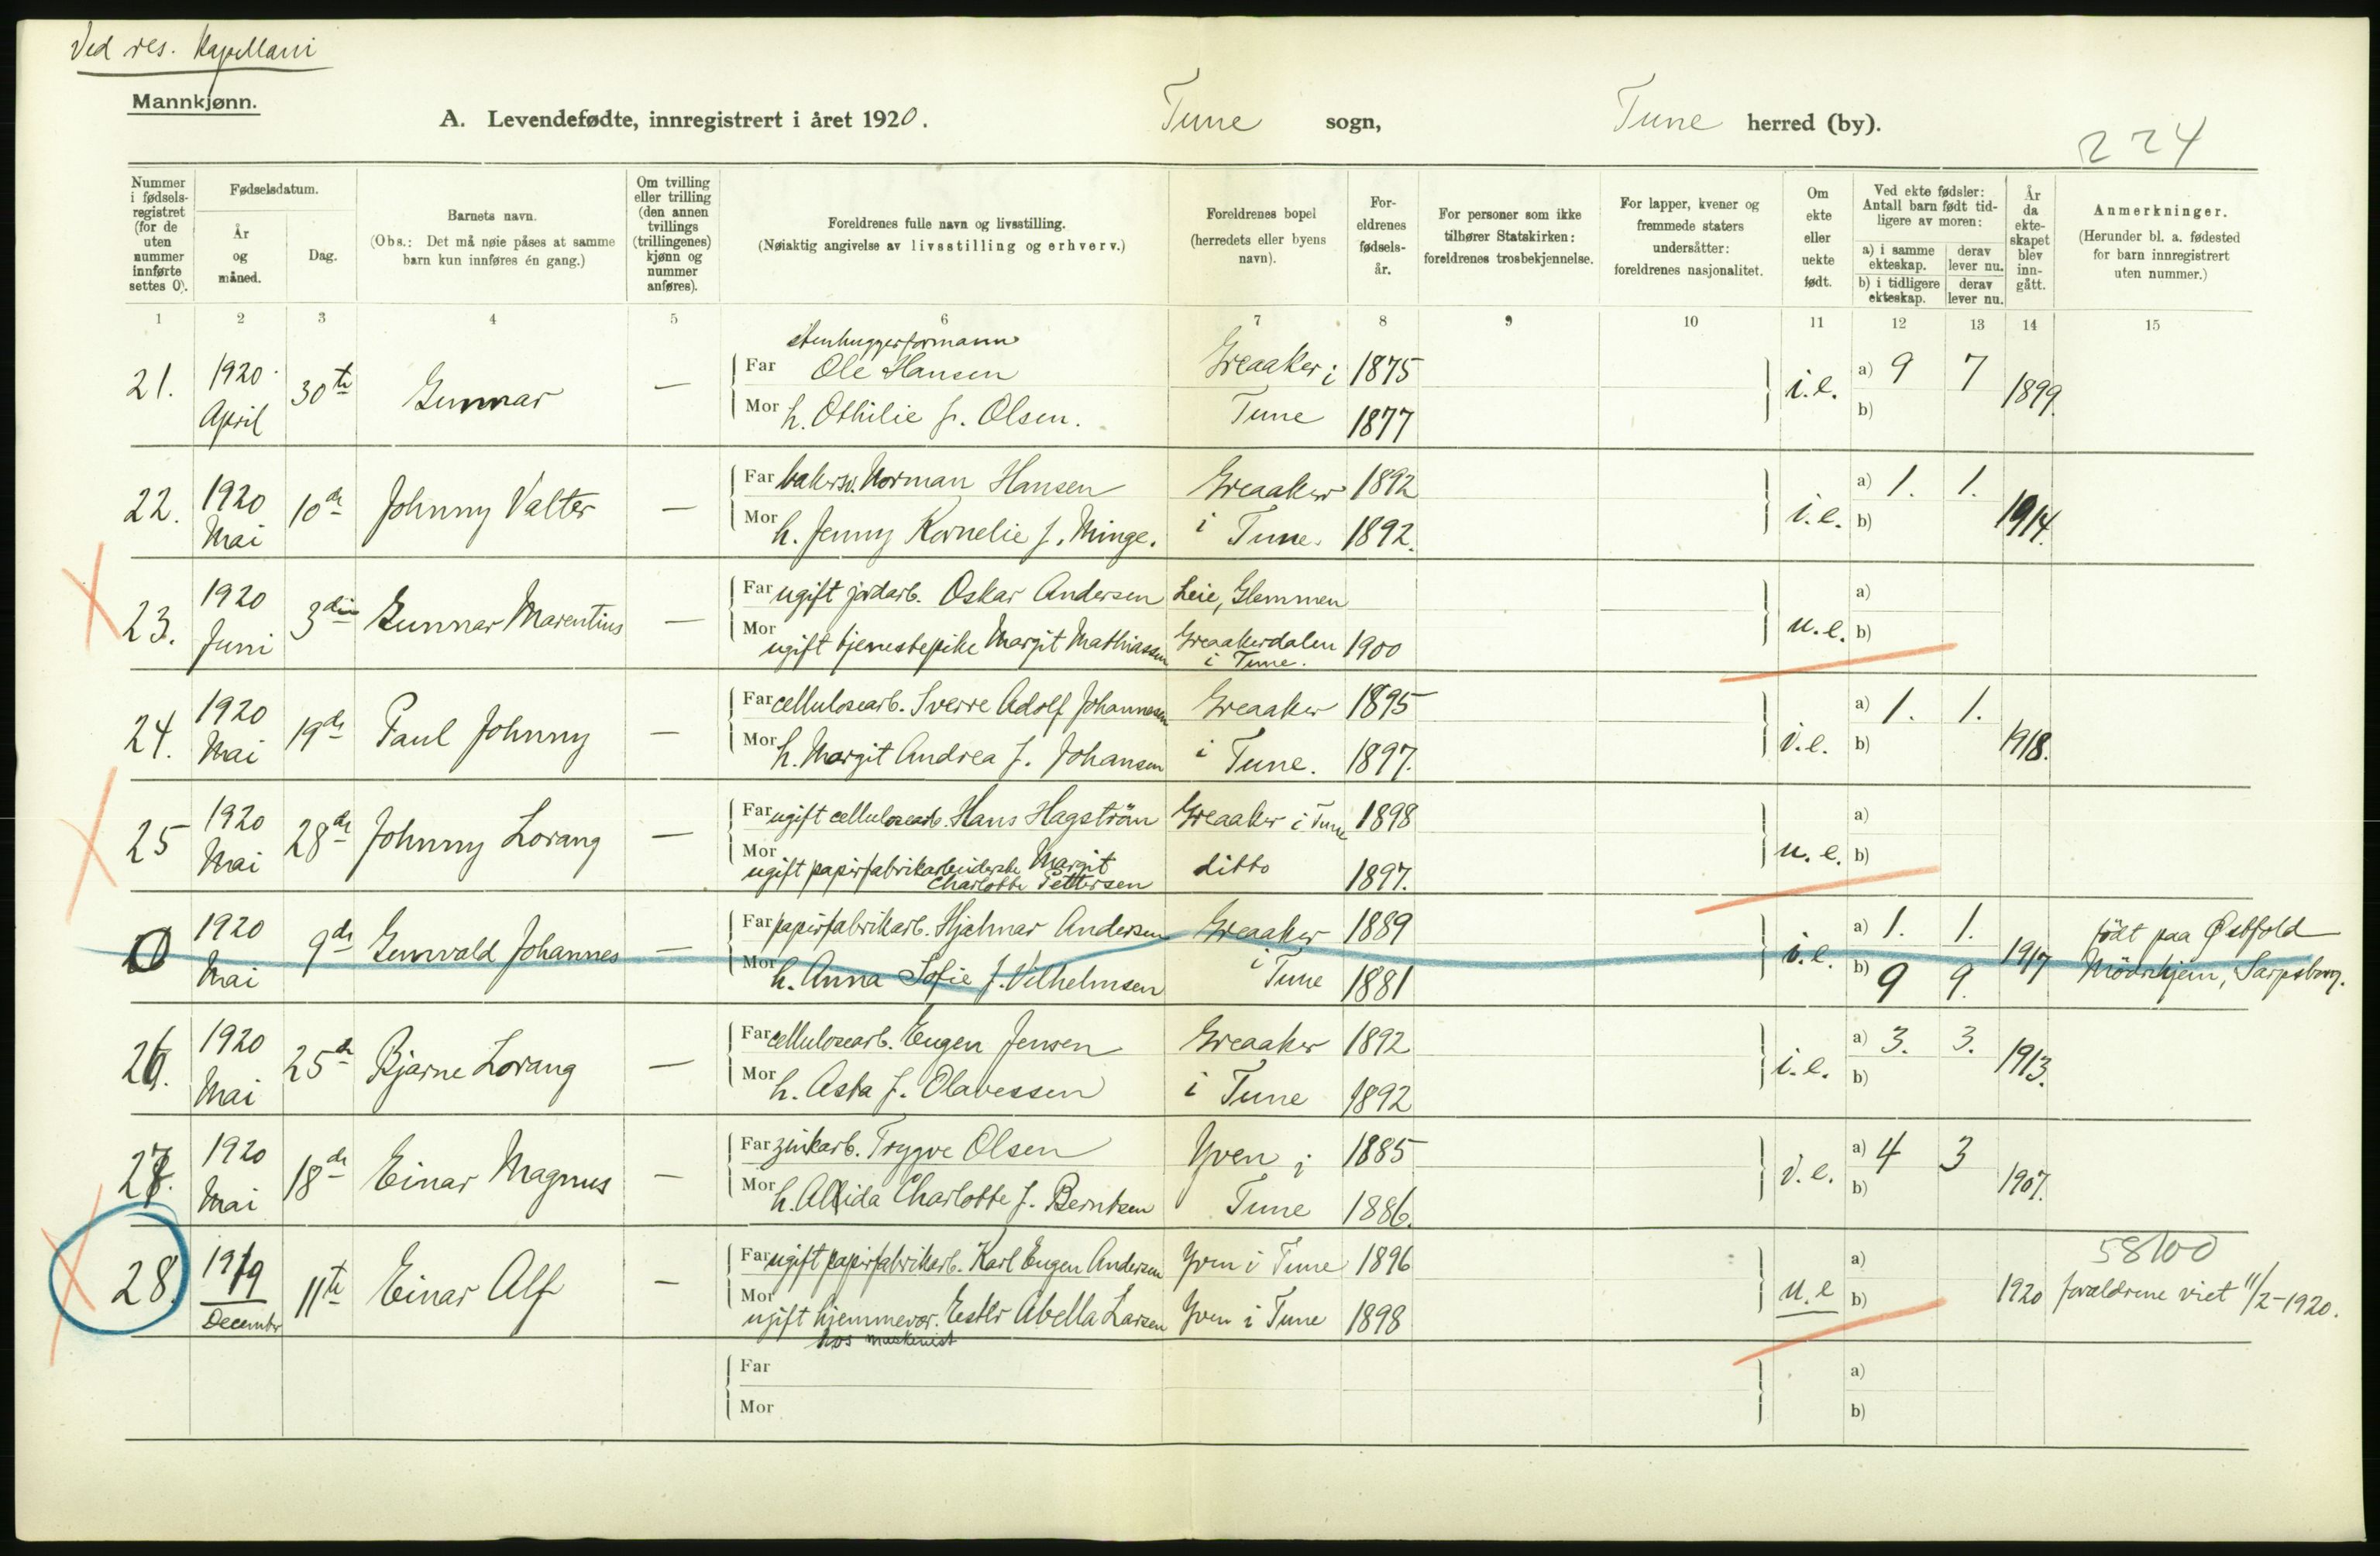 Ved res. Kapellani
Mannkjønn.
A. Levendefødte, innregistrert i året 1920. Tune sogn, Tune herred (by).
224
Nummer i fødsels-registret (for de uten nummer innførte settes 0).
Fødselsdatum.
År og måned.
Dag.
Barnets navn.
(Obs.: Det må nøie påses at samme barn kun innføres én gang.)
Om tvilling eller trilling (den annen tvillings (trillingenes) kjønn og nummer anføres).
Foreldrenes fulle navn og livsstilling.
(Nøiaktig angivelse av livsstilling og erhverv.)
Foreldrenes bopel (herredets eller byens navn).
For-eldrenes fødsels-år.
For personer som ikke tilhører Statskirken: foreldrenes trosbekjennelse.
For lapper, kvener og fremmede staters undersåtter: foreldrenes nasjonalitet.
Om ekte eller uekte født.
Ved ekte fødsler: Antall barn født tid-ligere av moren:
a) i samme ekteskap. derav lever nu.
b) i tidligere ekteskap. derav lever nu.
År da ekte-skapet blev inn-gått.
Anmerkninger.
(Herunder bl. a. fødested for barn innregistrert uten nummer.)
1 2 3 4 5 6 7 8 9 10 11 12 13 14 15
stenhuggerformann
21. 1920 April 30te Gunnar — Far Ole Hansen Greaaker i 1875 i.e. a) 9 7 1899.
Mor h. Othilie f. Olsen. Tune 1877 b)
22. 1920 Mai 10de Johnny Valter — Far bakersv. Norman Hansen Greaaker 1892 i.e. a) 1. 1. 1914.
Mor h. Jenny Kornelie f. Minge. i Tune. 1892. b)
23. 1920 Juni 3die Gunnar Marentius — Far ugift jordarb. Oskar Andersen Leie, Glemmen u.e. a)
Mor ugift tjenestepike Margit Mathiassen Greaakerdalen i Tune. 1900 b)
24. 1920 Mai 19de Paul Johnny — Far cellulosearb. Sverre Adolf Johannesen Greaaker 1895 i.e. a) 1. 1. 1918.
Mor h. Margit Andrea f. Johansen i Tune. 1897. b)
25 1920 Mai 28de Johnny Lorang — Far ugift cellulosearb. Hans Hagström Greaaker i Tune 1898 u.e. a)
Mor ugift papirfabrikarbeiderske Margit Charlotte Pettersen ditto 1897. b)
0 1920 Mai 9de Gunvald Johannes — Far papirfabrikarb. Hjalmar Andersen Greaaker 1889 i.e. a) 1. 1. 1917 født paa Østfold
Mor h. Anna Sofie f. Vilhelmsen i Tune 1881 b) 9 9. Mödrehjem, Sarpsborg.
26. 1920 Mai 25de Bjarne Lorang — Far cellulosearb. Eugen Jensen Greaaker 1892 i.e. a) 3. 3. 1913.
Mor h. Asta f. Olavessen i Tune 1892 b)
27. 1920 Mai 18de Einar Magnus — Far zinkarb. Trygve Olsen Yven i 1885 i.e. a) 4 3 1907.
Mor h. Alida Charlotte f. Berntsen Tune 1886. b)
58100
28. 1919 December 11te Einar Alf — Far ugift papirfabrikarb. Karl Eugen Andersen Yven i Tune 1896 u.e a) 1920 foraldrene viet 11/2-1920.
Mor ugift hjemmevær. Ester Abella Larsen Yven i Tune 1898 b)
hos maskinist
Far a)
Mor b)